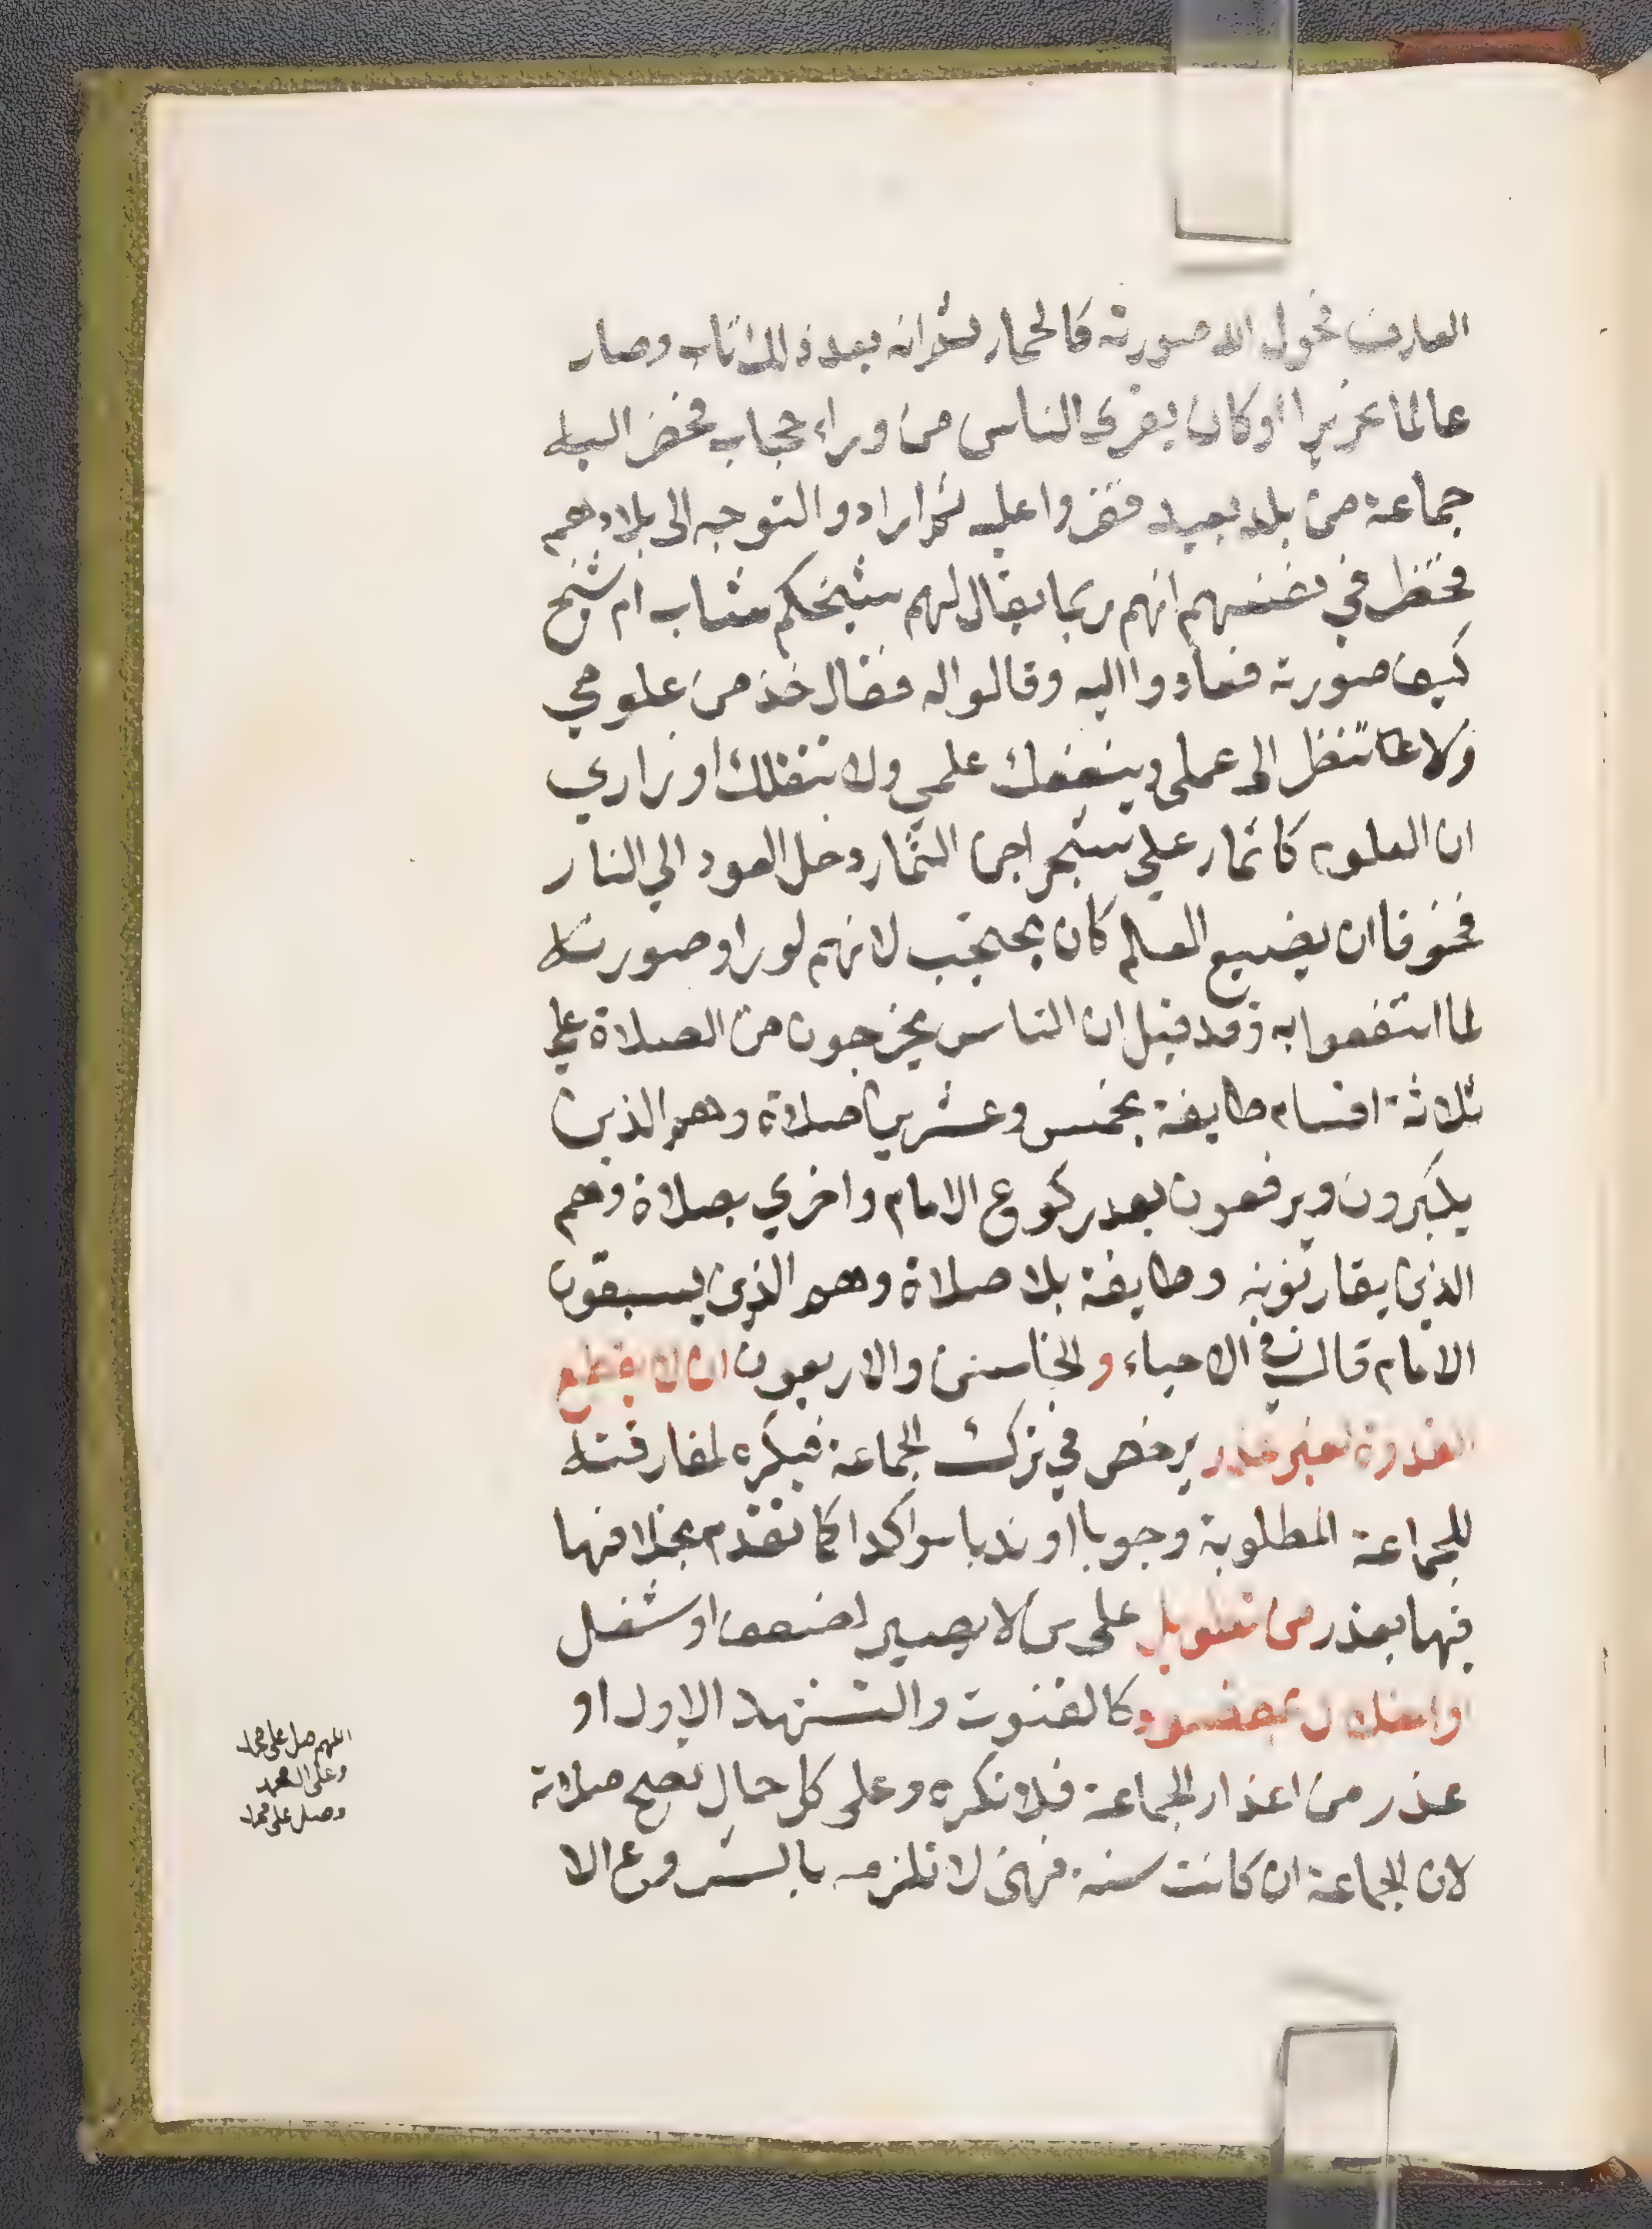 العارف فحول الله صورته كالحمار ثم انه بعد ذلك تاب وصار
عالما نحريرا وكان يقرى الناس من وراء حجاب فحضر اليه
جماعة من بلد بعيد فقروا عليه ثم ارادو التوجه الى بلادهم
فخطر في نفسهم انهم ربما يقال لهم شيخكم شاب ام شيخ
كيف صورته فعادوا اليه وقالوا له فقال خذ من علومي
ولا تنظر الى عملي وينفعك علمي ولا تنقلك اوزاري
ان العلوم كاثمار على شجر اجن الثمار وخل العود الي النار
فخوفا ان يضيع العلم كان يحتجب لانهم لو راو صورته
لما انتفعوا به وقد قيل ان الناس يخرجون من الصلاة علي
ثلاثة اقسام طايفة بخمس وعشرين صلاة وهم الذين
يكبرون ويرفعون بعد ركوع الامام واخري بصلاة وهم
الذين يقارنونه وطايفة بلا صلاة وهم الذين يسبقون
الامام قال في الاحياء والخامس والاربعون ان لا يقطع
القدوة لغير عذر يرخص في ترك الجماعة فيكره لمفارقته
للجماعة المطلوبة وجوبا او ندبا مواكدا كما تقدم بخلافها
فيها بعذر من تطويل على من لا يصبر لضعف او شغل
كالقنوت والتشهد الاول او
عذر من اعذار الجماعة فلا تكره وعلى كل حال تصح صلاته
لان الجماعة ان كانت سنة فهى لا تلزم بالشروع الا
اللهم صل على محمد
وصل على محمد